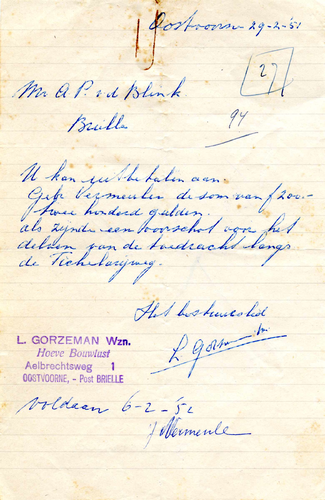 Oostvoorne 29-2-'52
27
Mr A P. v d Blink.
Brielle
94
U kan uitbetalen aan
Gebr Vermeulen de som van f 200.-
twee honderd gulden.
als zijnde een voorschot voor het
delven van de toedracht langs
de Tichelarijweg.
Het bestuurslid
L Gorzeman
L. GORZEMAN Wzn.
Hoeve Bouwlust
Aelbrechtsweg 1
OOSTVOORNE, - Post BRIELLE
voldaan 6-2-'52
Vermeule